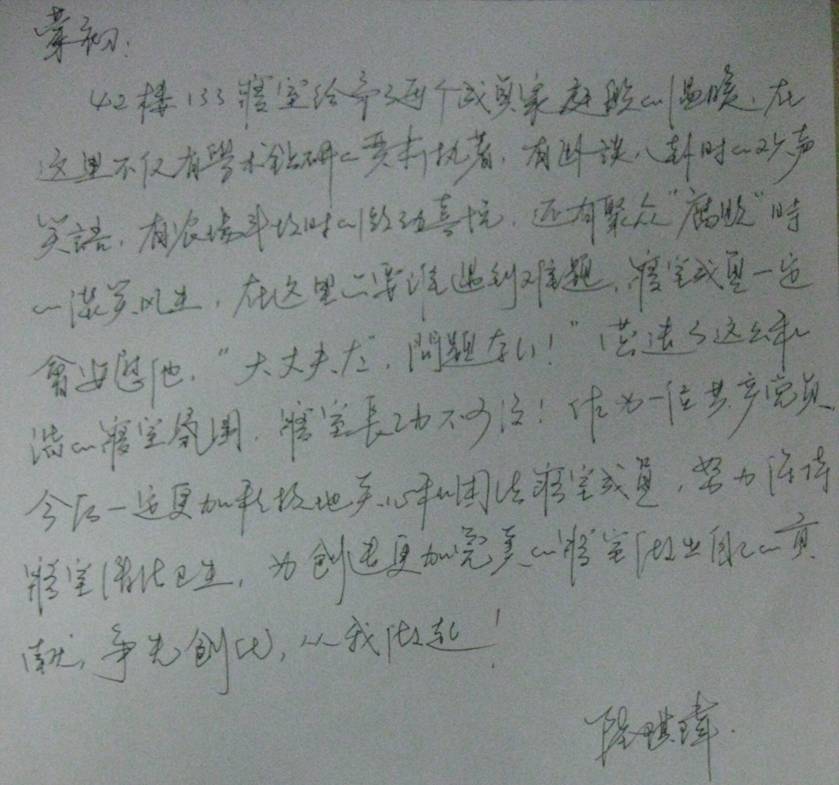 42楼133寝室给予了每个成员家庭般的温暖，在
这里不仅有學术钻研的严肃执著，有閒談八卦时的欢声
笑語，有农场丰收时的激动喜悦，还有聚众“腐败”时
的谈笑风生，在这里只要谁遇到难题，寝室成員一定
會安慰他，“大丈夫だ，問題ない！”营造了这么和
谐的寝室氛围，寝室長功不可没！作为一位共产党员
今后一定更加积极地关心和团结寝室成員，努力保持
寝室清洁卫生，为创造更加完美的寝室做出自己的贡
献，争先创优，从我做起！
琪瑋